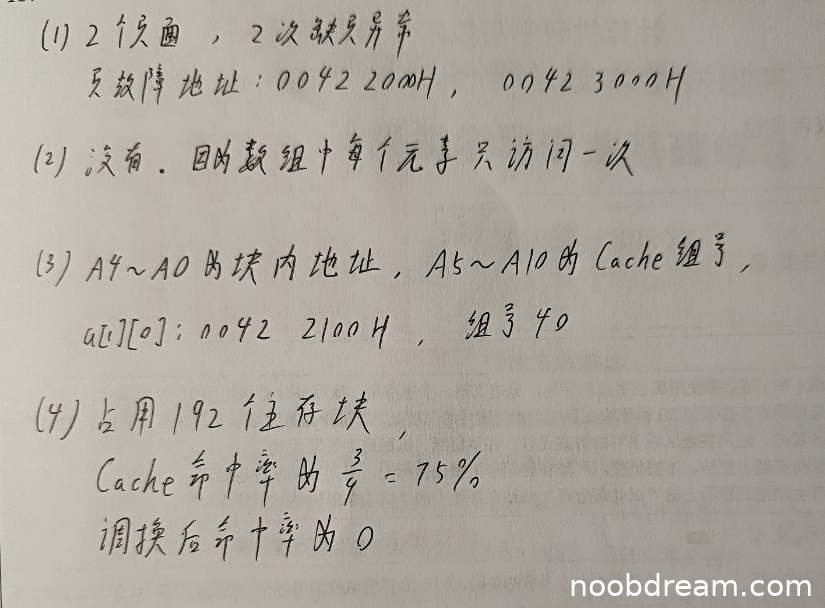 (1) 2个页面，2次缺页异常
页故障地址：0042 2000H， 0042 3000H
(2) 没有．因为数组中每个元素只访问一次
(3) A4~A0为块内地址，A5~A10为Cache组号，
a[1][0]：0042 2100H ， 组号 40
(4) 占用192个主存块，
Cache命中率为 3/4 = 75%
调换后命中率为0
noobdream.com